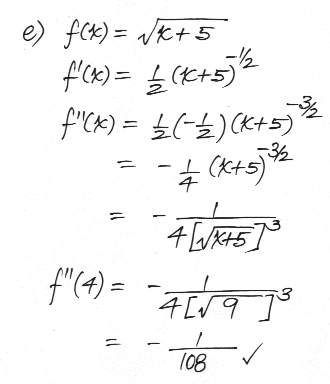 e) f(x) = √x+5
f'(x) = 1/2 (x+5)^-1/2
f''(x) = 1/2 (-1/2) (x+5)^-3/2
= - 1/4 (x+5)^-3/2
= - 1/4[√x+5]^3
f''(4) = - 1/4[√9]^3
= - 1/108 ✓